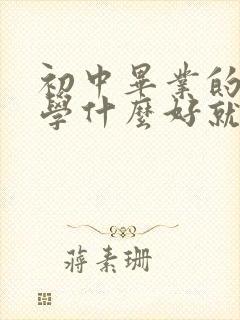 初中畢業的
學什麼好就
蔣素珊